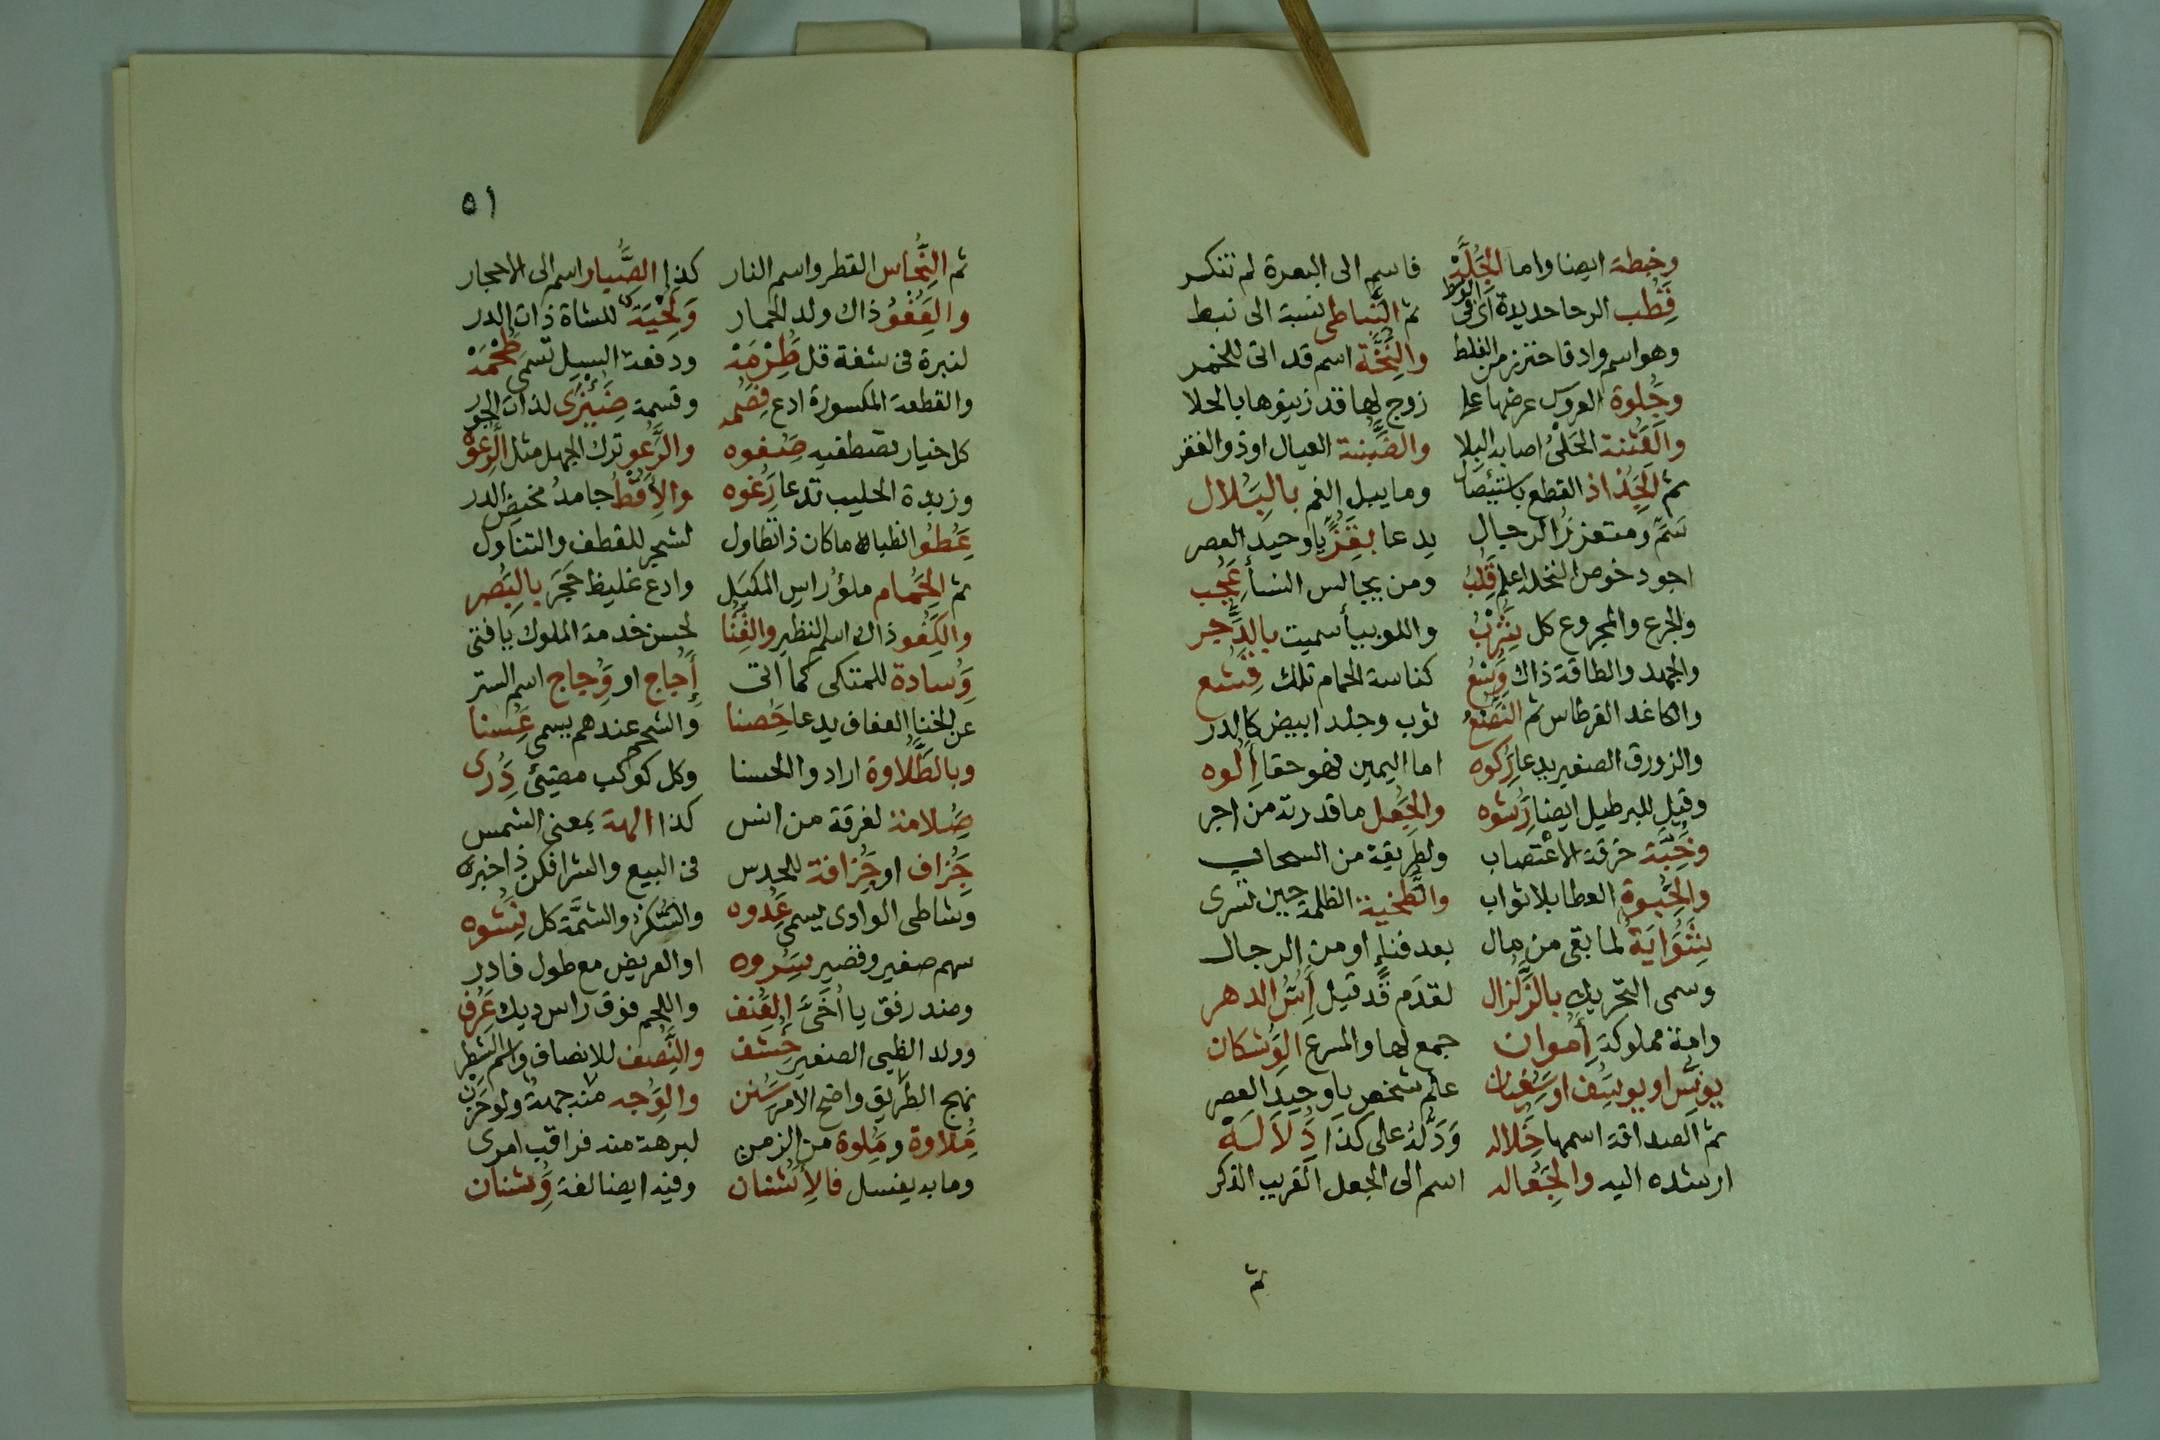 وخبطة ايضا واما الجلة فاسم الى البعرة لم تنكر
قطب الرحا حديدة اى فى الوسط ثم النباطى نسبة الى نبط
وهو اسم واد فاحترز من الغلط والنخة اسم قد اتى للخمر
وجلوة العروس عرضها على زوج لها قد زينوها بالحلا
والفتنة اصابه البلا والضبنة العيال او ذو الفقر
ثم الجذاذ القطع باستئصال وما يبل الفم بالبلال
سم ومتعزز الرجال يدعا بقز يا وحيد العصر
اجود خوص النخل اعلم قلب ومن يجالس النسأ عجب
والجرع والمجروع كل شرب واللوبيأ سميت بالدجر
والجهد والطاقة ذاك وسع كناسة الحمام تلك قشع
والكاغد القرطاس ثم النصع ثوب وجلد ابيض كالدر
والزورق الصغير يدعا ركوه اما اليمين فهو حقا الوه
وقيل للبرطيل ايضا رشوه والجعل ما قدرته من اجر
وخبة خرقة الاعتصاب ولطريقة من السحاب
والحبوة العطا بلا ثواب والطخية الظلمة حين تسرى
شواية لما بقى من مال بعد فناء او من الرجال
وسمى التحريك بالزلزال لقدم قد قيل أس الدهر
وامة مملوكة إموان جمع لها والمسرع الوشكان
يونس او يوسف او سفيان علم شخص يا وحيد العصر
ثم الصداقة اسمها خلاله ودله على كذا دلاله
ارشده اليه والجعاله اسم الى الجعل القريب الذكر
ثم
٥١
ثم النحاس القطر واسم النار كذا الصيار اسم الى الاحجار
والعفو ذاك ولد الحمار ولجية للشاة ذات الدر
لنبرة فى شفة قل طرمه ودفعة السيل تسمى طحمه
والقطعة المكسورة ادع قصمه وقسمة ضئزى لذات الجور
كل خيار تصطفيه صفوه والرعو ترك الجهل مثل الرعوه
وزبدة الحليب تدعا رغوه والاقط جامد مخيض الدر
عطو الظباء ما كان ذا تطاول لشجر للقطف والتناول
ثم الجمام ملؤ راس المكيل وادع غليظ حجر بالبصر
والكفو ذاك اسم النظير والقنا لحسن خدمة الملوك يا فتى
وسادة للمتكى كما اتى أجاج او وجاج اسم الستر
عن الخنا العفاف يدعا حصنا والشحم عندهم يسمى عسنا
وبالطلاوة ارادوا الحسنا وكل كوكب مضيئ درى
صلامة لفرقة من انس كذا الهة بمعنى الشمس
جزاف او جزافة للحدس فى البيع والشرا فكن ذا خبره
وشاطى الوادى يسمى عدوه والسكر والشمة كل نشوه
سهم صغير وقصير سروه او العريض مع طول فادر
وضد رفق يا أخى العنف واللحم فوق راس ديك عرف
وولد الظبى الصغير خشف والنصف للانصاف واسم الشطر
نهج الطريق واضح الامر سنن والوجه منه جهة
ملاوة وملوة من الزمن لبرهة منه فراقب امرى
وما به يغسل فالاشنان وفيه ايضا لغة وشنان